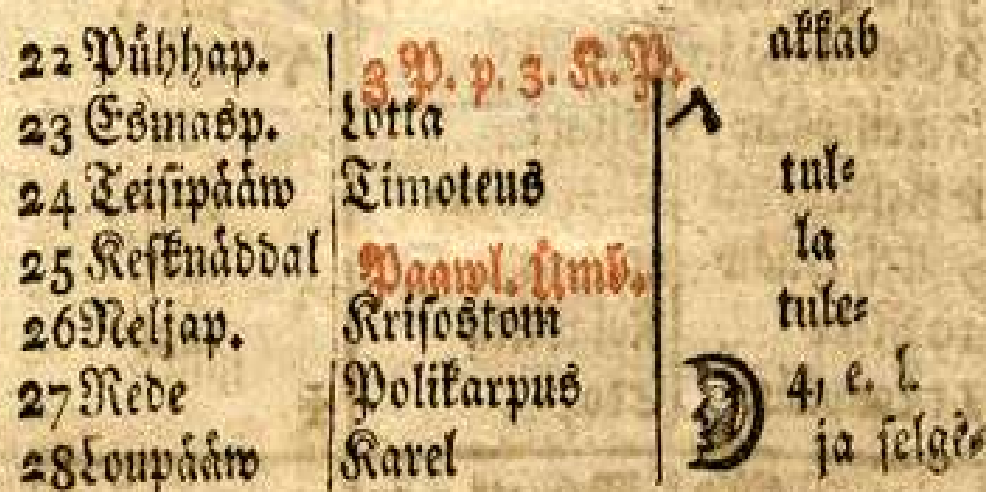 22 Pühhap. 3 P. p. 3. K. P. akkab
23 Esmasp. Lotta
24 Teisipååw Timoteus tul=
25 Kesknåddal Paawl. Ümb. la
26 Neljap. Krisostom tule=
27 Rede Polikarpus 4, e. l.
28 Loupååw Karel ja selge=